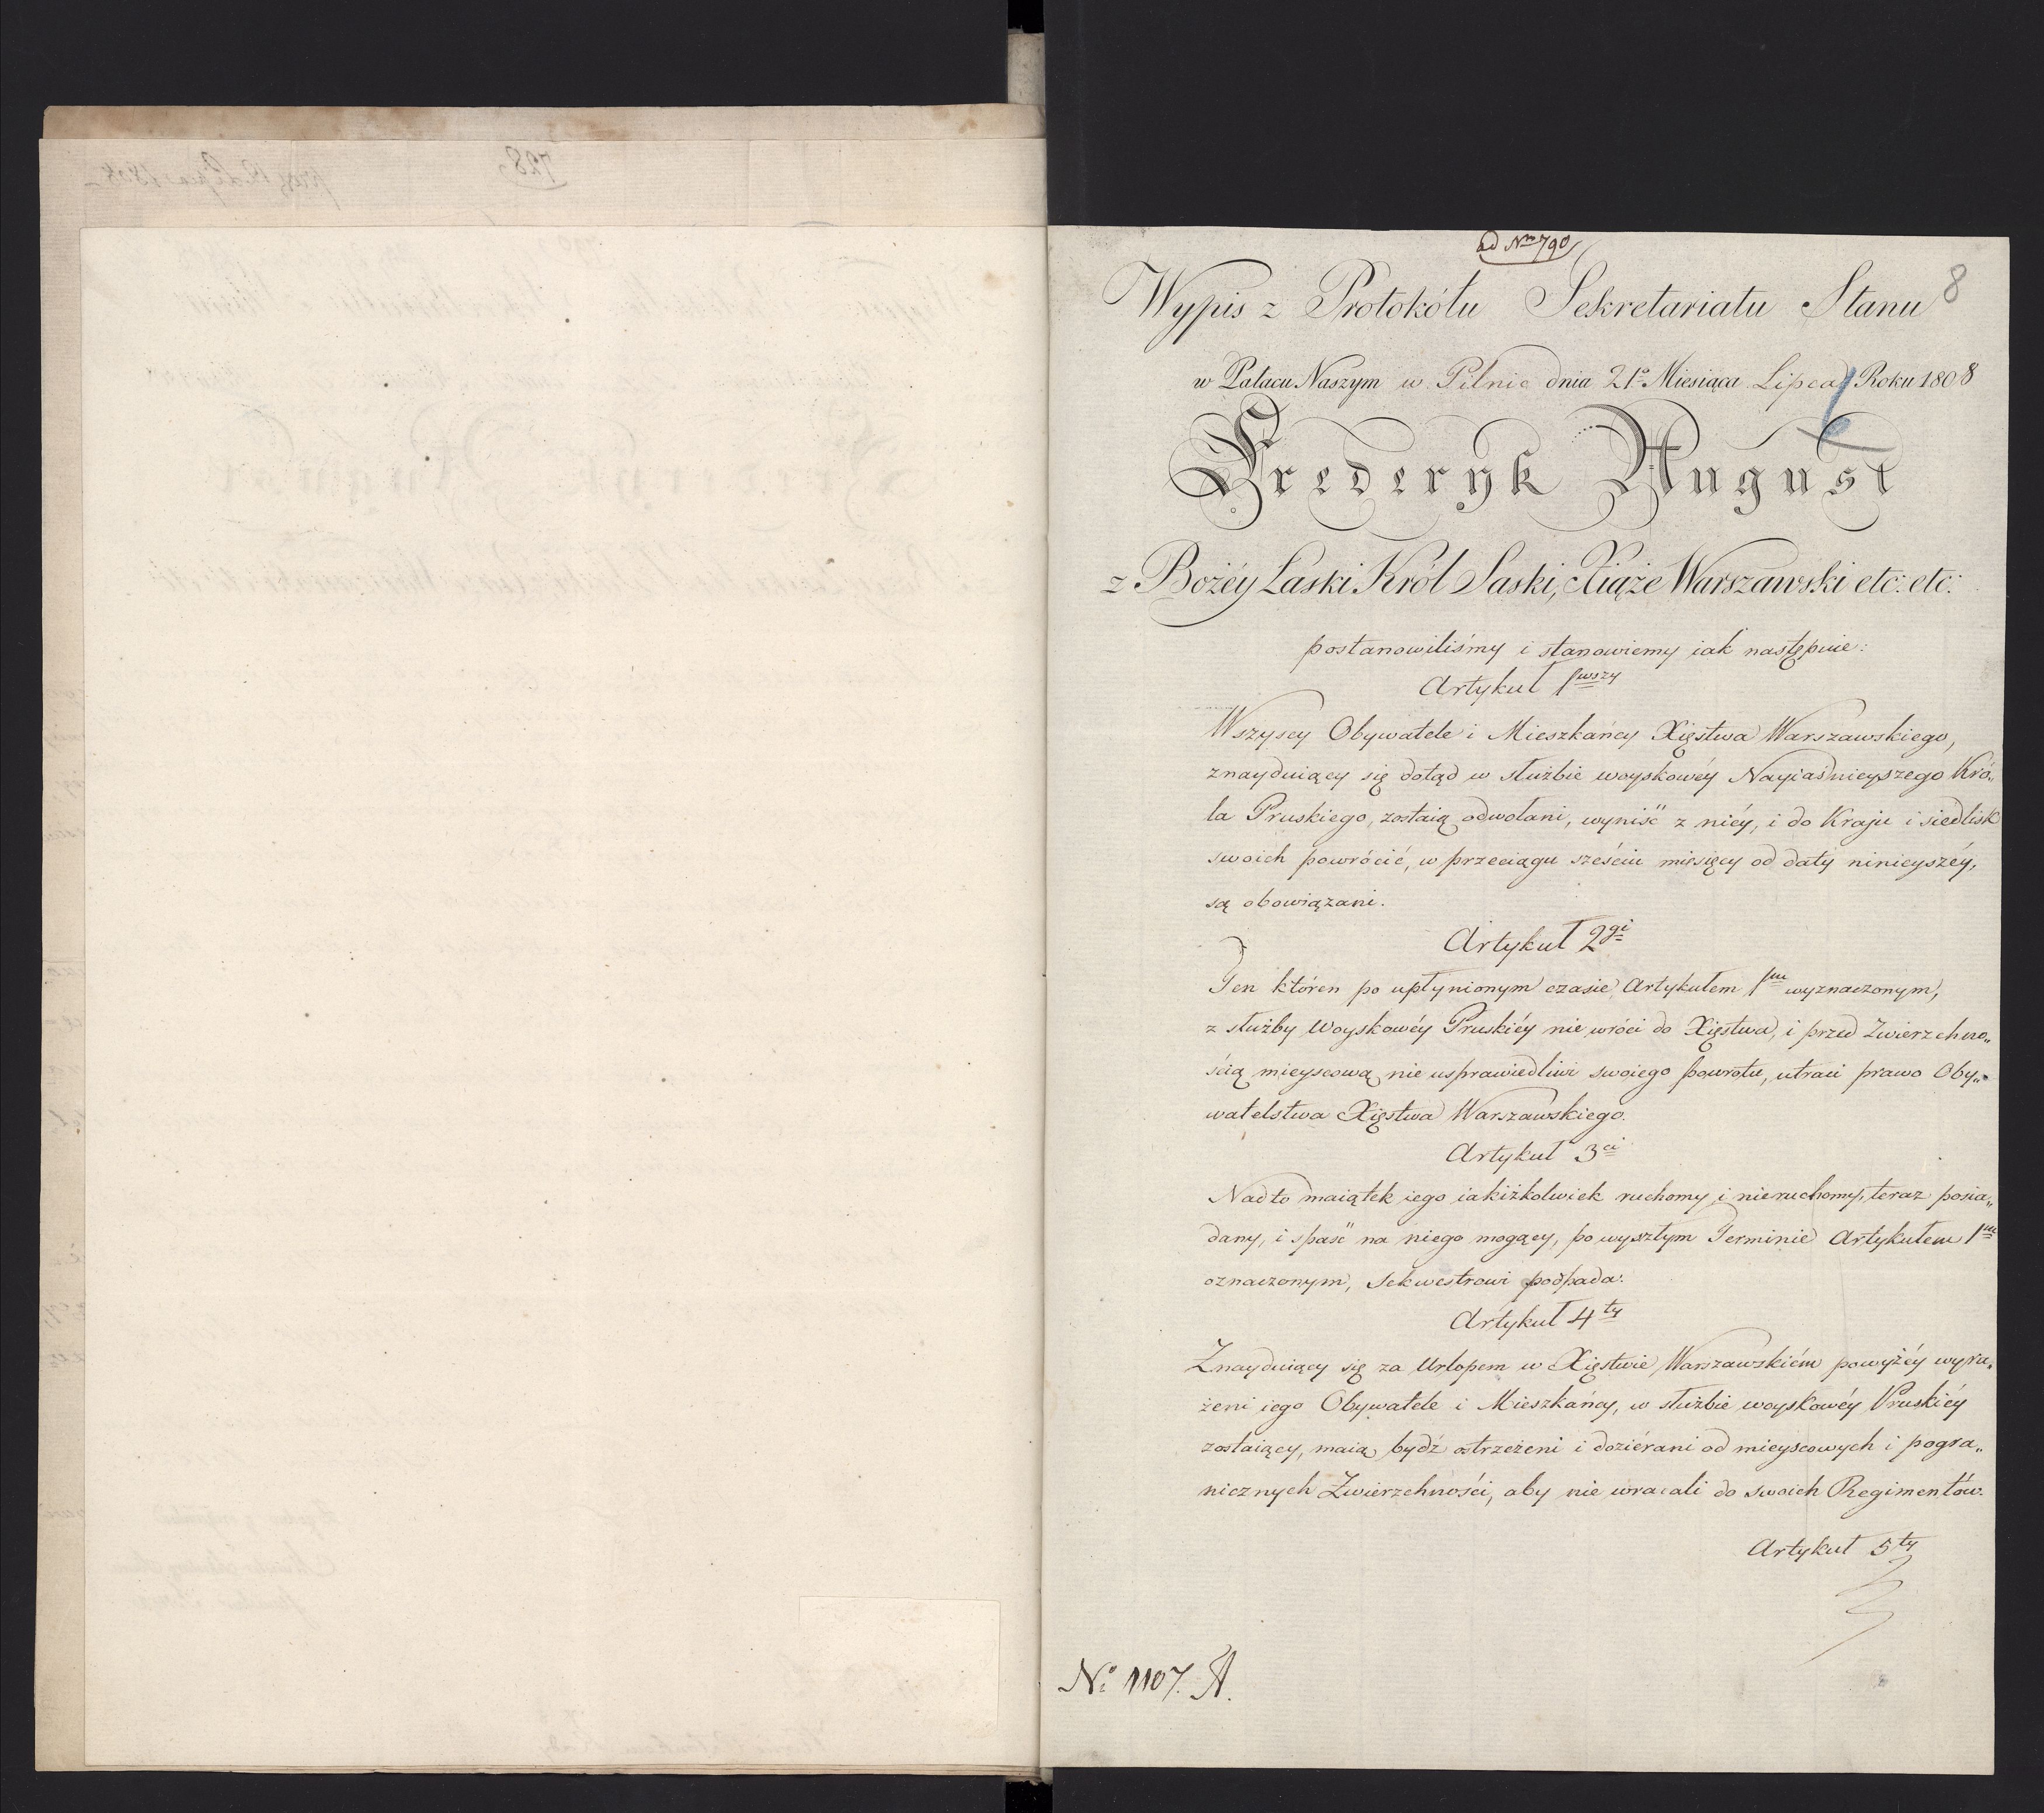 ad Nro 790
8
Wypis z Protokółu Sekretariatu Stanu
w Pałacu Naszym w Pilnic dnia 21o Miesiąca Lipca Roku 1808
Frederyk August
z Bożéy Łaski Król Saski, Xiąże Warszawski etc: etc:
postanowiliśmy i stanowiemy iak następuie:
Artykuł 1wszy
Wszyscy Obywatele i Mieszkańcy Xięstwa Warszawskiego,
znayduiący się dotąd w służbie woyskowéy Nayiaśnieyszego Kró„
la Pruskiego, zostaią odwołani, wyniść z niéy, i do Kraju i siedlisk
swoich powrócić, w przeciągu sześciu miesięcy od daty ninieyszéy,
są obowiązani.
Artykuł 2gi
Ten któren po upłynionym czasie Artykułem 1m wyznaczonym,
z służby Woyskowéy Pruskiéy nie wróci do Xięstwa, i przed Zwierzchno„
ścią mieyscową nie usprawiedliwi swoiego powrotu, utraci prawo Oby„
watelstwa Xięstwa Warszawskiego.
Artykuł 3ci
Nadto maiątek iego iakiżkolwiek ruchomy i nieruchomy, teraz posia„
dany, i spaść na niego mogący, po wyszłym Terminie Artykułem 1m
oznaczonym, Sekwestrowi podpada.
Artykuł 4ty
Znayduiący się za Urlopem w Xięstwie Warszawskiém powyżéy wyra„
żeni iego Obywatele i Mieszkańcy, w służbie woyskowéy Pruskiéy
zostaiący, maią bydź ostrzeżeni i doziérani od mieyscowych i pogra„
nicznych Zwierzchności, aby nie wracali do swoich Regimentów.
Artykuł 5ty
No 1107. A.